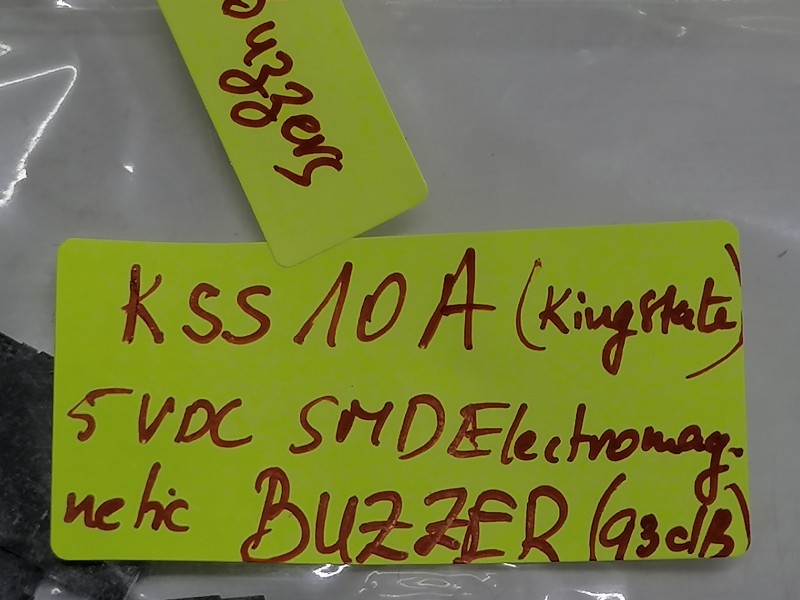 buzzers
KSS 10 A (Kingstate)
5 VDC SMD Electromag-
netic BUZZER (93dB)